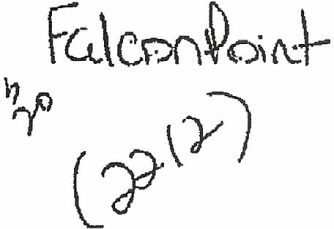 FalconPoint
(2212)